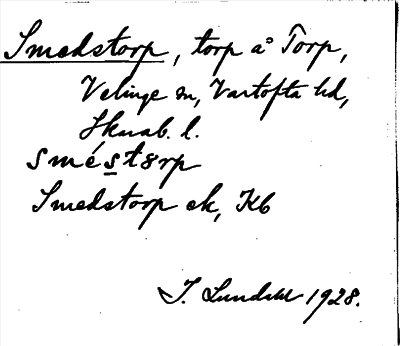 Smedstorp, torp å Torp,
Velinge sn, Vartofta hd,
Skarab. l.
smés̲tørp
Smedstorp ek, Kb
J. Lundahl 1928.